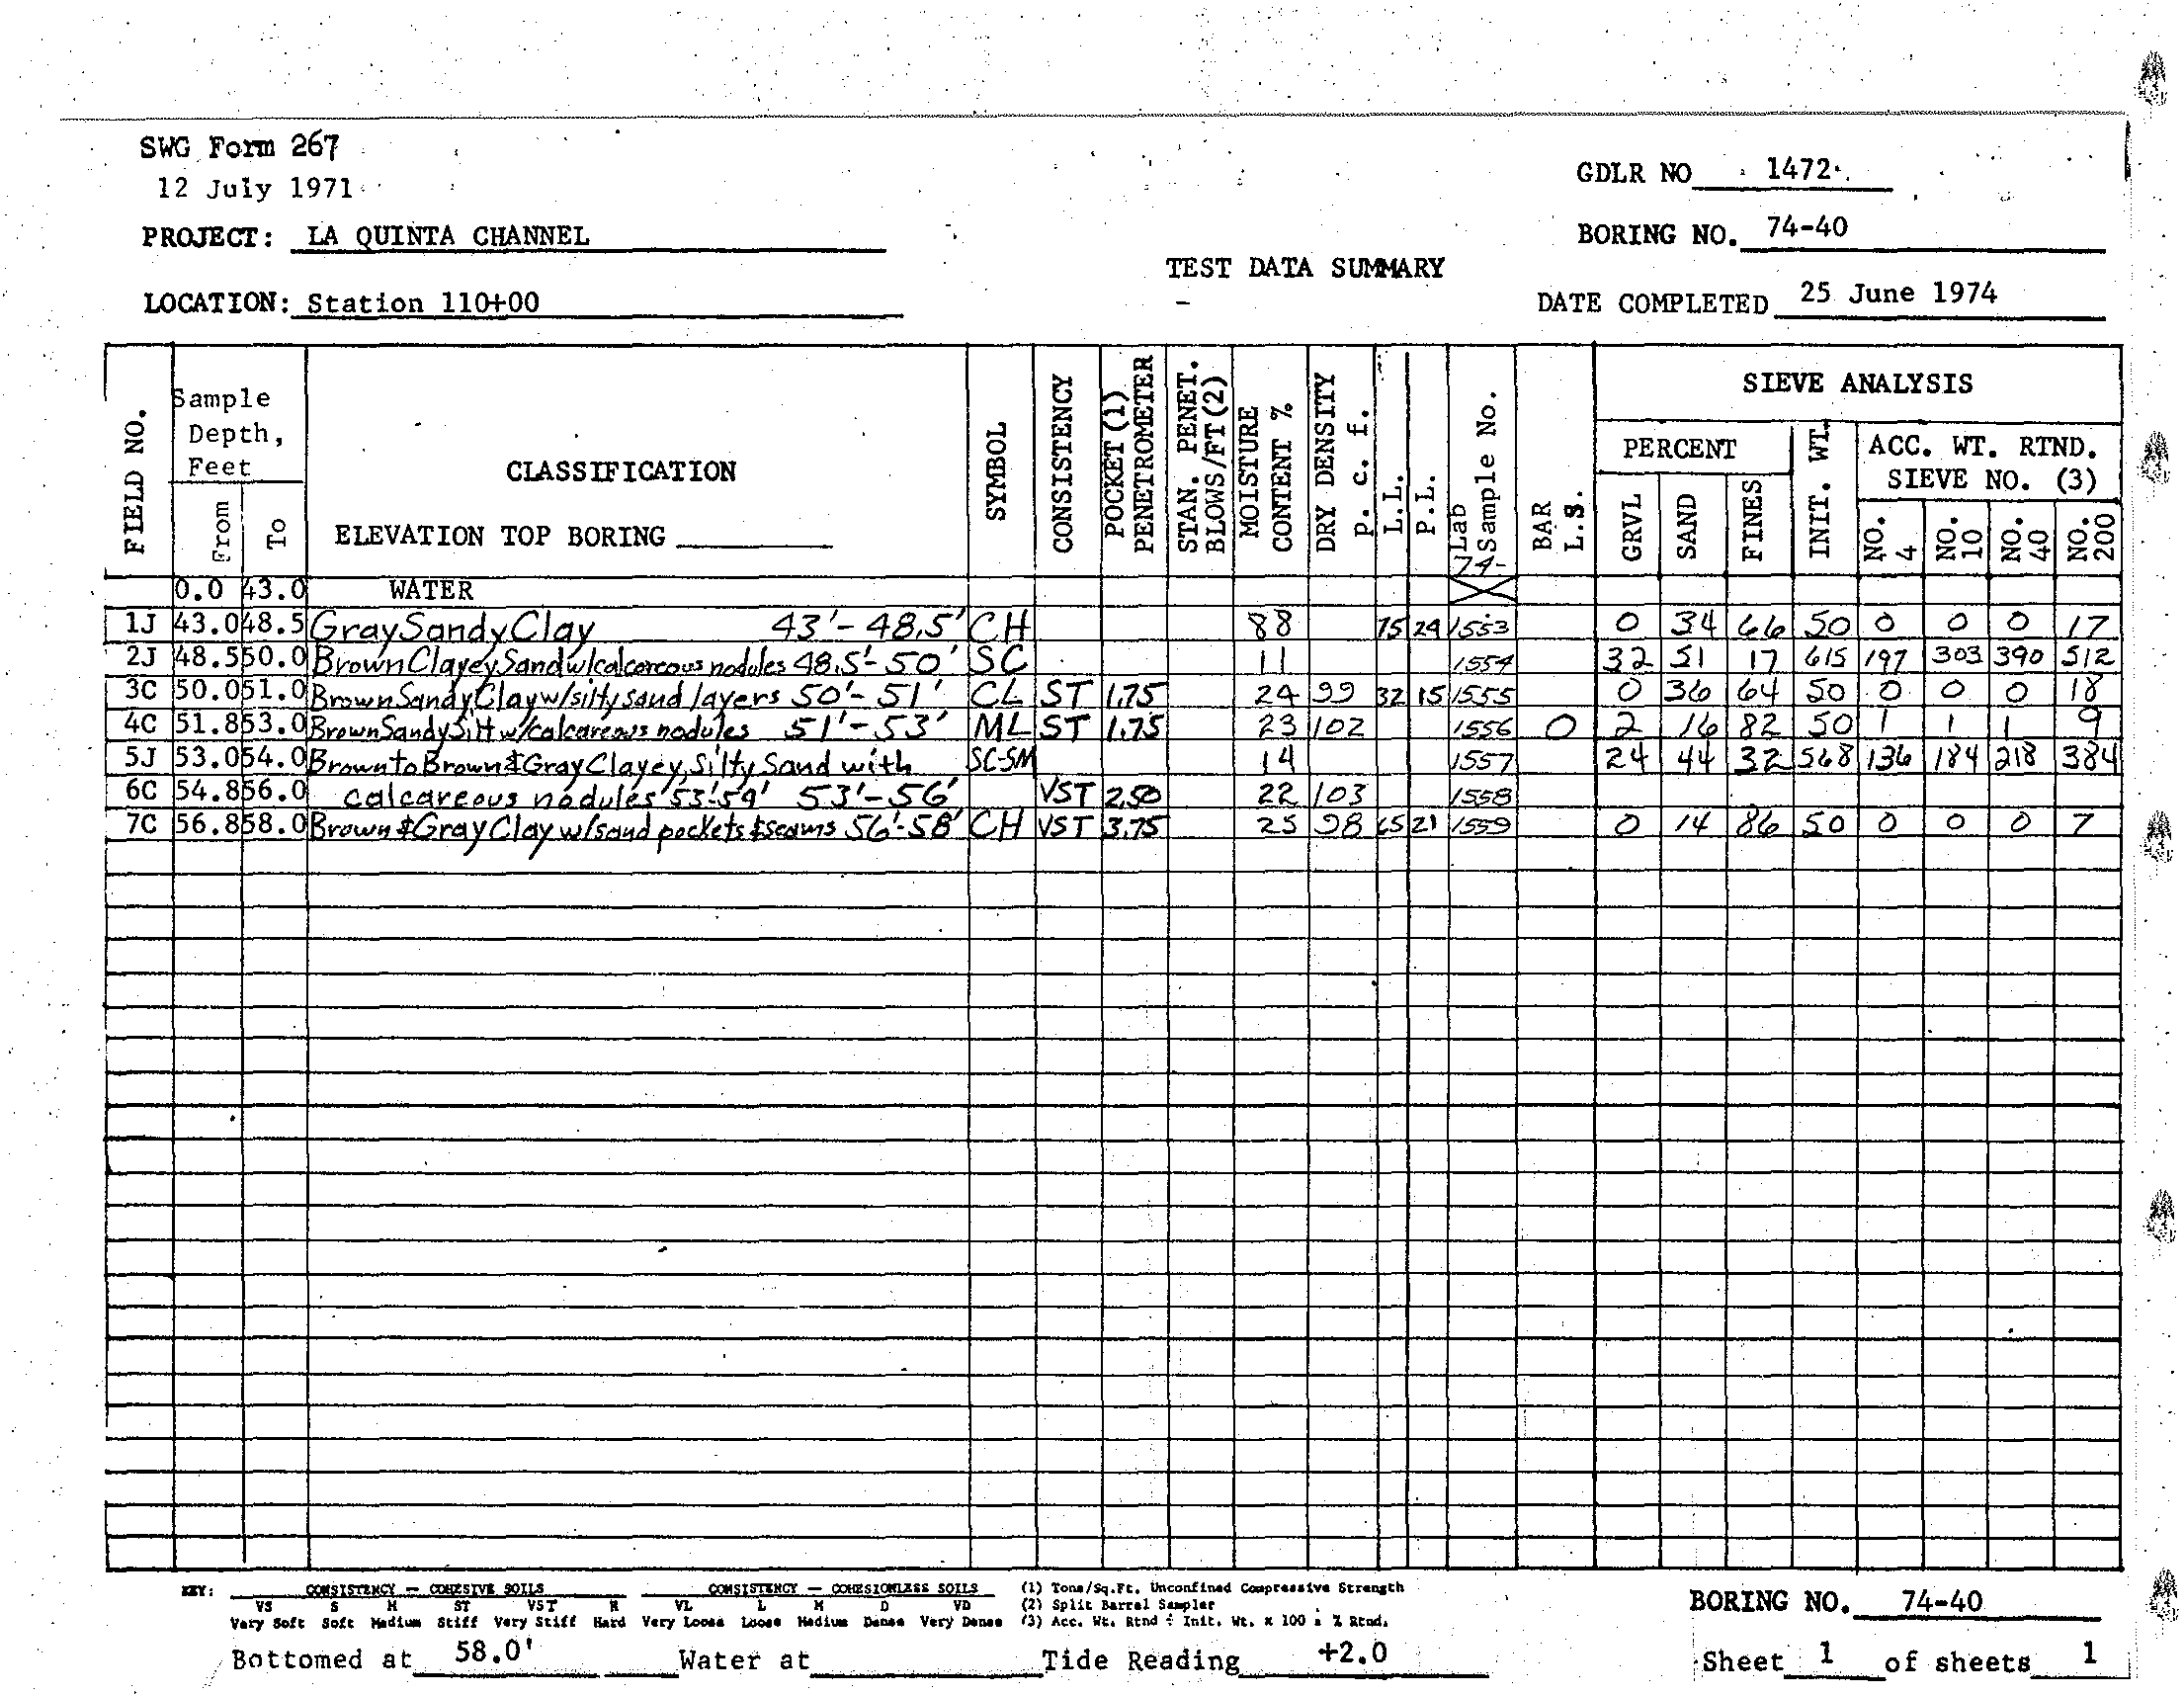 SWG Form 267
12 July 1971
GDLR NO 1472
PROJECT: LA QUINTA CHANNEL
BORING NO. 74-40
TEST DATA SUMMARY
LOCATION: Station 110+00
DATE COMPLETED 25 June 1974
FIELD NO.
Sample Depth, Feet
From
To
CLASSIFICATION
ELEVATION TOP BORING
SYMBOL
CONSISTENCY
POCKET (1) PENETROMETER
STAN. PENET. BLOWS/FT (2)
MOISTURE CONTENT %
DRY DENSITY p. c. f.
L.L.
P.L.
Lab Sample No.
74-
BAR L.S.
SIEVE ANALYSIS
PERCENT
GRVL
SAND
FINES
INIT. WT.
ACC. WT. RTND.
SIEVE NO. (3)
NO. 4
NO. 10
NO. 40
NO. 200
0.0 43.0 WATER
1J 43.0 48.5 Gray Sandy Clay 43'-48.5' CH 88 75 29 1553 0 34 66 50 0 0 0 17
2J 48.5 50.0 Brown Clayey Sand w/calcareous nodules 48.5'-50' SC 11 1554 32 51 17 615 197 303 390 512
3C 50.0 51.0 Brown Sandy Clay w/silty sand layers 50'-51' CL ST 1.75 24 99 32 15 1555 0 36 64 50 0 0 0 18
4C 51.8 53.0 Brown Sandy Silt w/calcareous nodules 51'-53' ML ST 1.75 23 102 1556 0 2 16 82 50 1 1 1 9
5J 53.0 54.0 Brown to Brown & Gray Clayey, Silty Sand with SC-SM 14 1557 24 44 32 568 136 184 218 384
6C 54.8 56.0 calcareous nodules 53'-59' 53'-56' VST 2.50 22 103 1558
7C 56.8 58.0 Brown & Gray Clay w/sand pockets & seams 56'-58' CH VST 3.75 25 98 65 21 1559 0 14 86 50 0 0 0 7
KEY: CONSISTENCY — COHESIVE SOILS CONSISTENCY — COHESIONLESS SOILS (1) Tons/Sq.Ft. Unconfined Compressive Strength
VS S M ST VST H VL L M D VD (2) Split Barrel Sampler
Very Soft Soft Medium Stiff Very Stiff Hard Very Loose Loose Medium Dense Very Dense (3) Acc. Wt. Rtnd ÷ Init. Wt. x 100 = % Rtnd.
BORING NO. 74-40
Bottomed at 58.0' Water at Tide Reading +2.0
Sheet 1 of sheets 1